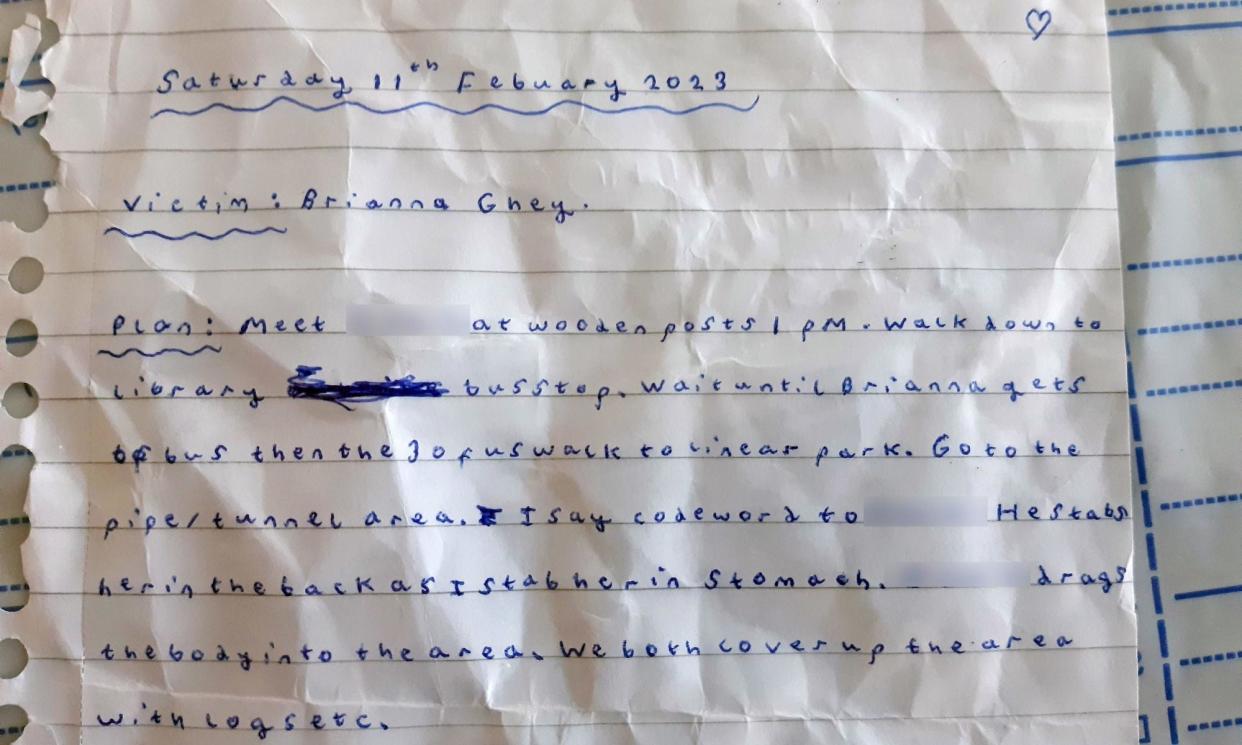 Saturday 11th Febuary 2023
Victim: Brianna Ghey.
Plan: Meet at wooden posts 1 PM. Walk down to
library bus stop. Wait until Brianna gets
of bus then the 3 of us walk to linear park. Go to the
pipe/tunnel area. I say codeword to He stabs
her in the back as I stab her in stomach. drags
the body into the area. We both cover up the area
with logs etc.